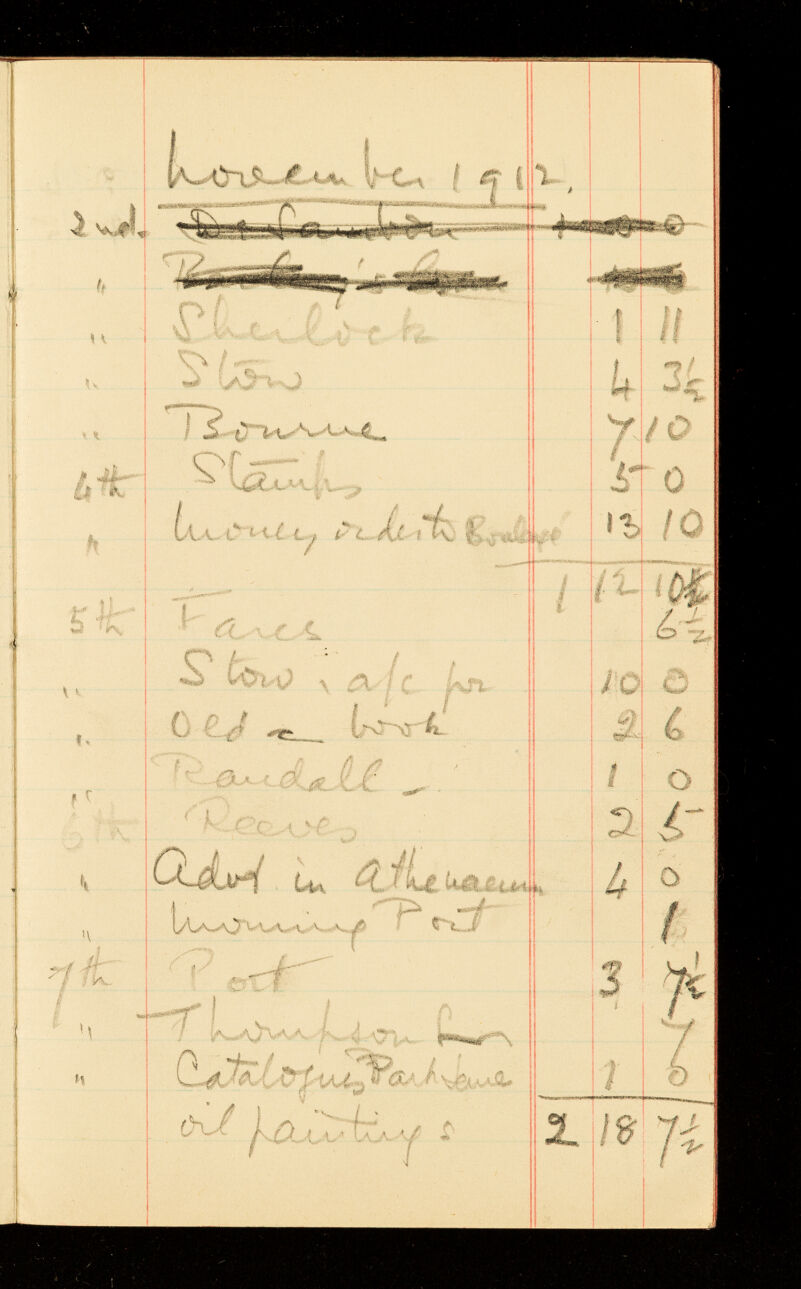 November 1912.
2nd. Dr Sambon 1 0 0
"
" Sherlock 1 11
" Stow 4 3½
" Bourne 7 10
4th Stamps 5 0
" Money order to 13 10
1 12 10½
5th Fares 6½
" Stow, a/c for 10 0
" Old book 2 6
" Randall - 1 0
6th Reeves 2 5
" Advt in Athenaeum 4 0
" Morning Post 1
7th Post 3 7½
" Thompson 7
" Catalogues Park Lane 1 0
oil paintings 2 18 7½